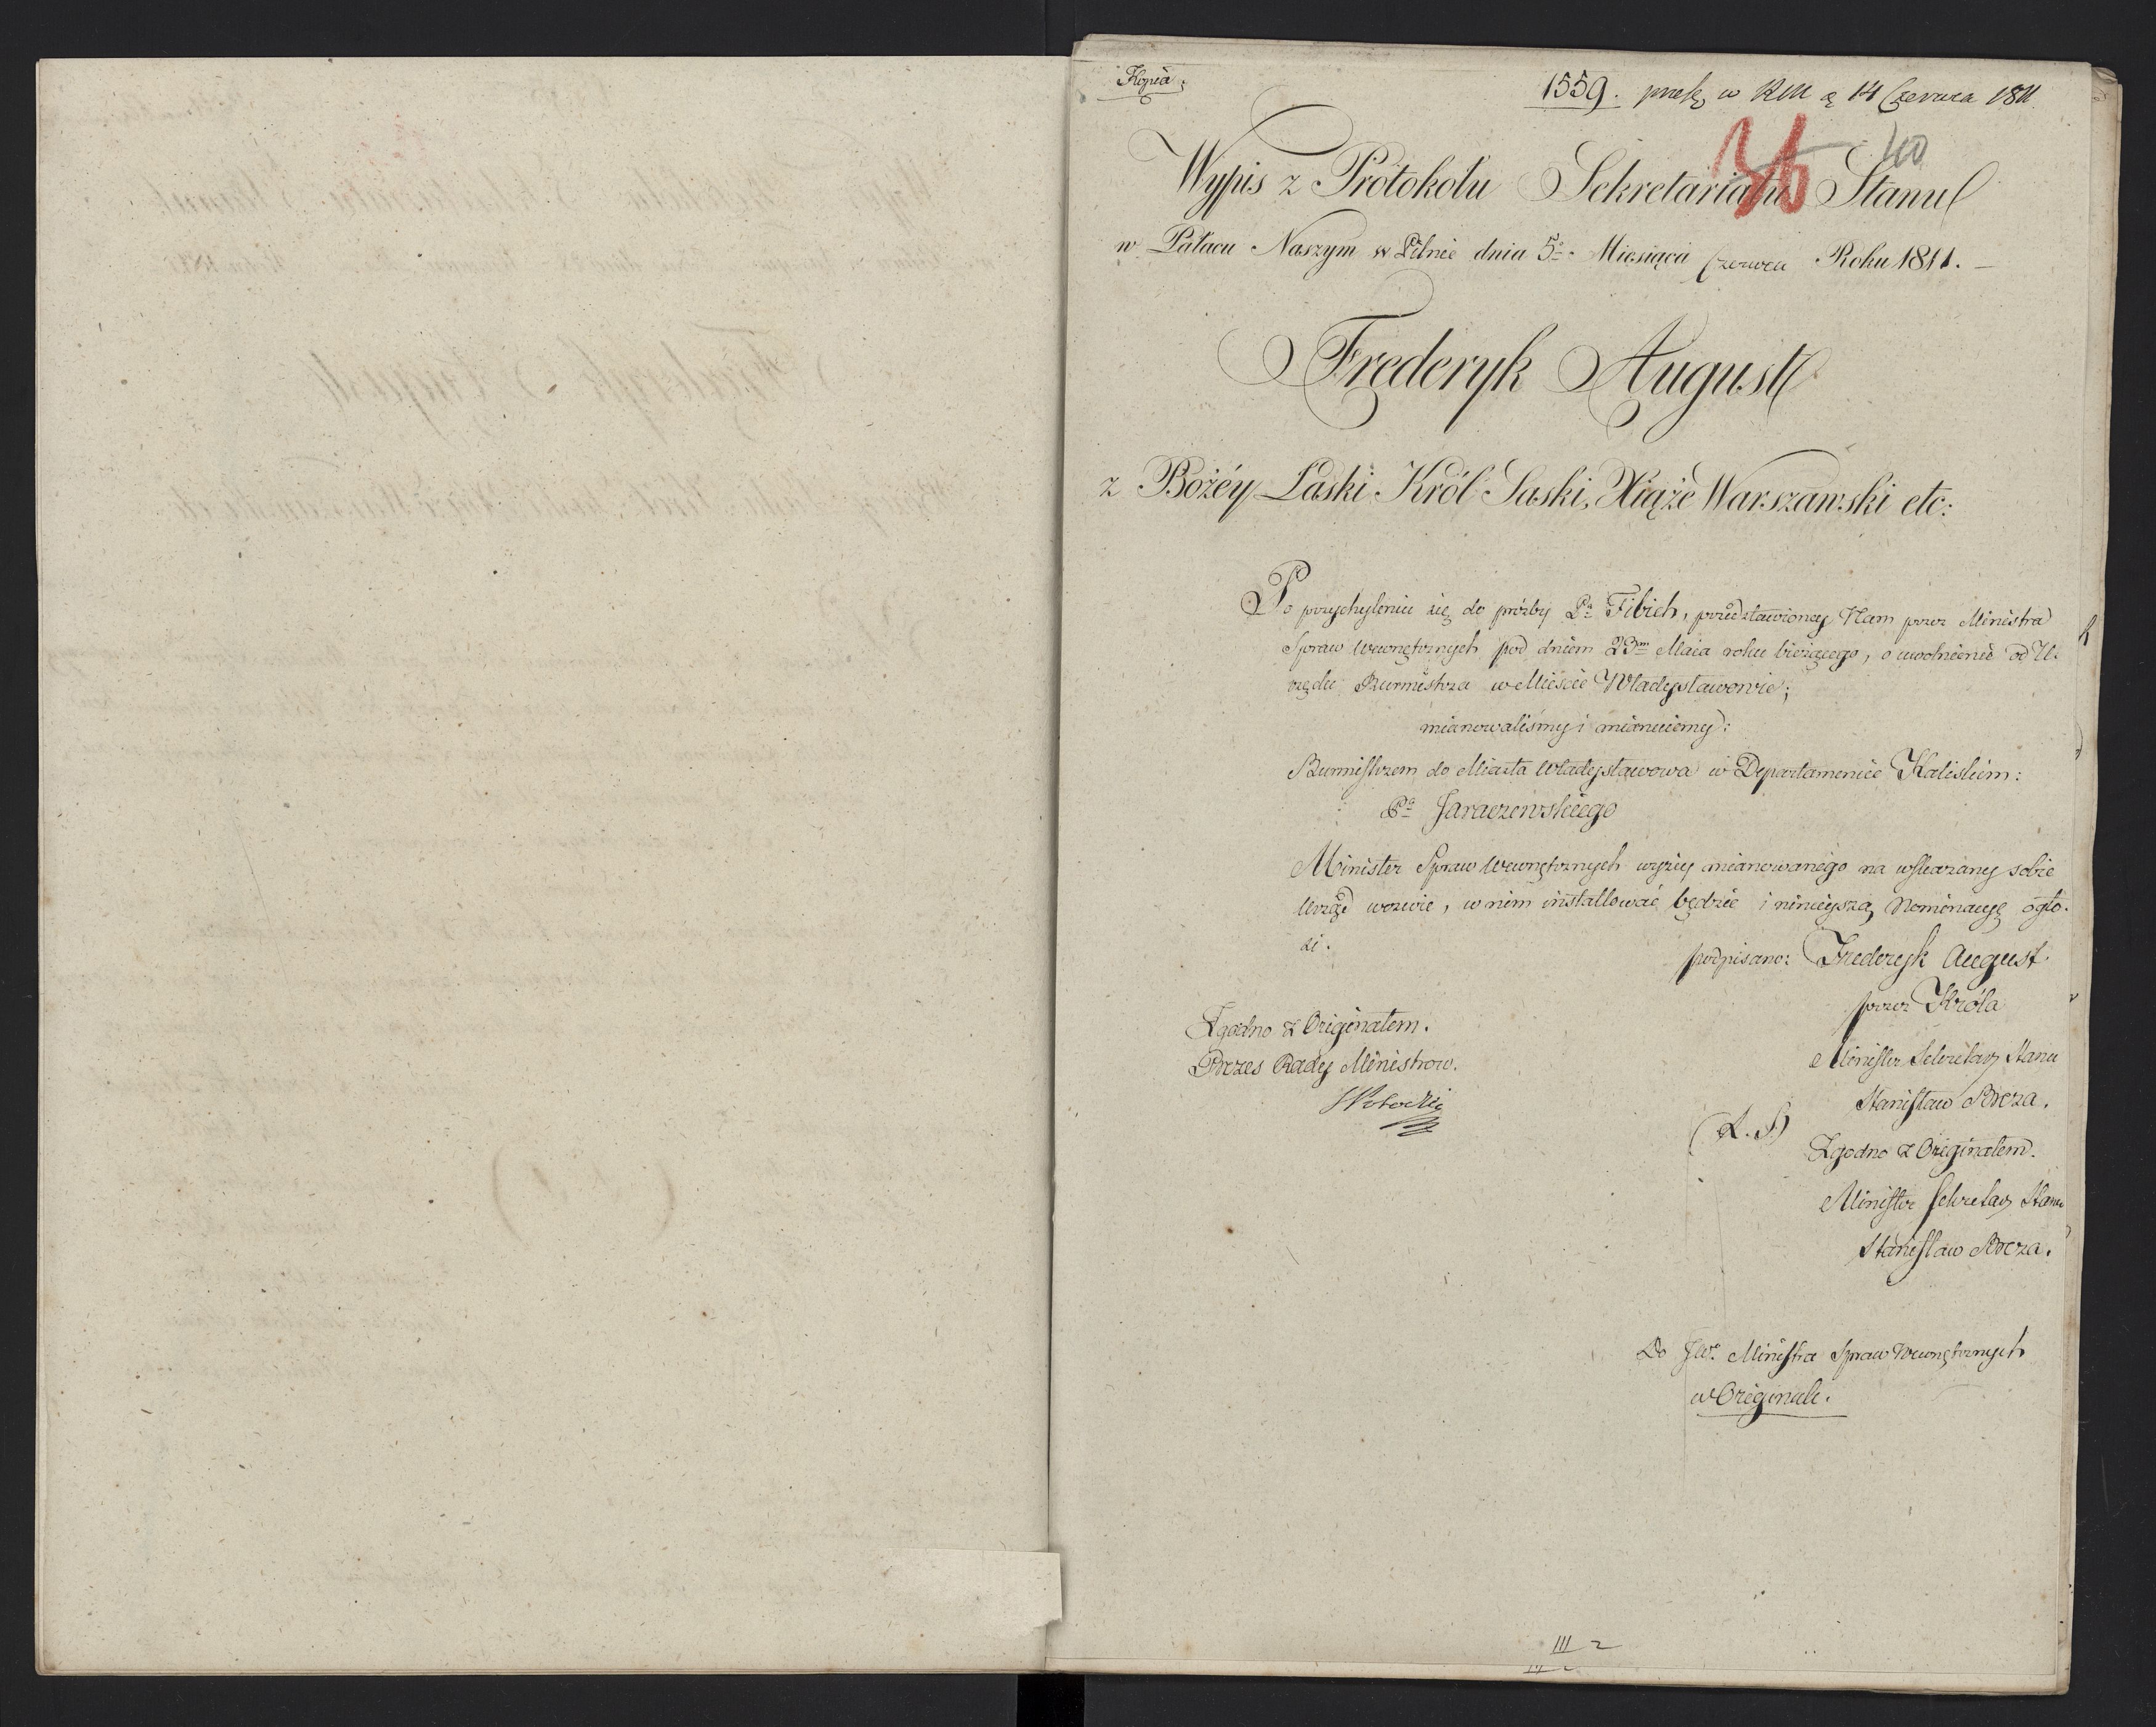 Kopia:
1559. preſ. w RM d 14 Czerwca 1811.
36 40
Wypis z Protokołu Sekretariatu Stanu
w Pałacu Naszym w Pilnie dnia 5º Miesiąca Czerwca Roku 1811. —
Frederyk August
z Bożéy Łaski Król Saski, Xiąże Warszawski etc:
Po przychyleniu się do prózby Pa Fibich, przedstawioney Nam przez Ministra
Spraw Wewnętrznych pod dniem 23m Maia roku bieżącego, o uwolnienie od U-
rzędu Burmistrza w Mieście Władysławowie;
mianowaliśmy i mianuiemy:
Burmiſtrzem do Miasta Władysławowa w Departamencie Kaliskim:
Pa Jaraczewskiego
Minister Spraw Wewnętrznych wyżey mianowanego na wſkazany sobie
Urząd wezwie, w nim installować będzie i ninieyszą Nominacyę ogło-
si.
podpisano: Frederyk August.
przez Króla
Miniſter Sekretarz Stanu
Staniſław Breza.
(L. S.)
Zgodno z Originałem.
Miniſter Sekretarz Stanu
Staniſław Breza.
Zgodno z Originałem.
Prezes Rady Ministrow.
SPotocki
Do JW. Miniſtra Spraw Wewnętrznych
w Originale.
III 2